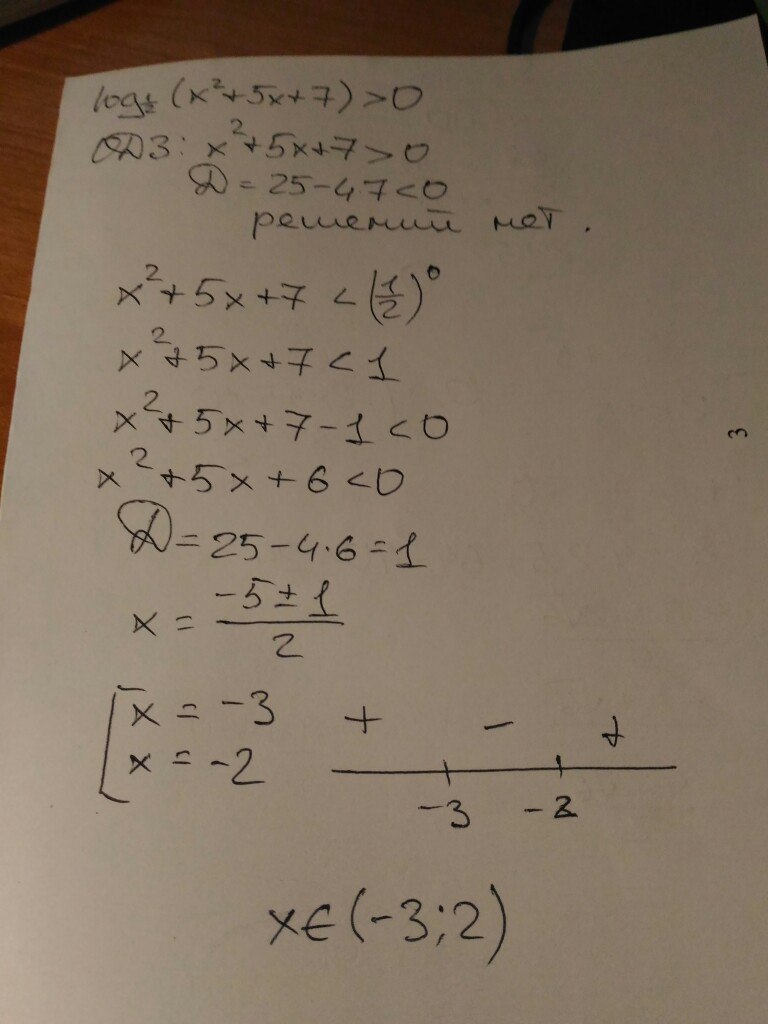 log½ (x²+5x+7) >0
ОДЗ: x²+5x+7>0
D = 25-47<0
решений нет.
x²+5x+7 <(1/2)⁰
x²+5x+7<1
x²+5x+7-1<0
x²+5x+6<0
3
D=25-4·6=1
x = (-5±1)/2
[x = -3
x = -2
+ - +
-3 -2
x∈(-3;2)